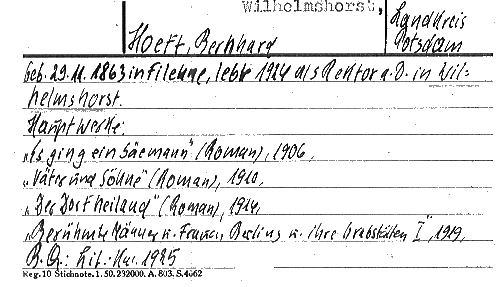 Wilhelmshorst,
Landkreis
Potsdam
Hoeft, Bernhard
geb. 29.11.1863 in Filehne, lebte 1924 als Rektor a. D. in Wil-
helmshorst.
Hauptwerke:
„Es ging ein Säemann" (Roman), 1906,
„Väter und Söhne" (Roman), 1910,
„Der Dorfheiland" (Roman), 1914,
„Berühmte Männer u. Frauen Berlins u. ihre Grabstätten I", 1919,
B.Q.: Lit.: Kü. 1925
Reg. 10 Stichnote. 1. 50. 232000. A. 803. S. 4662